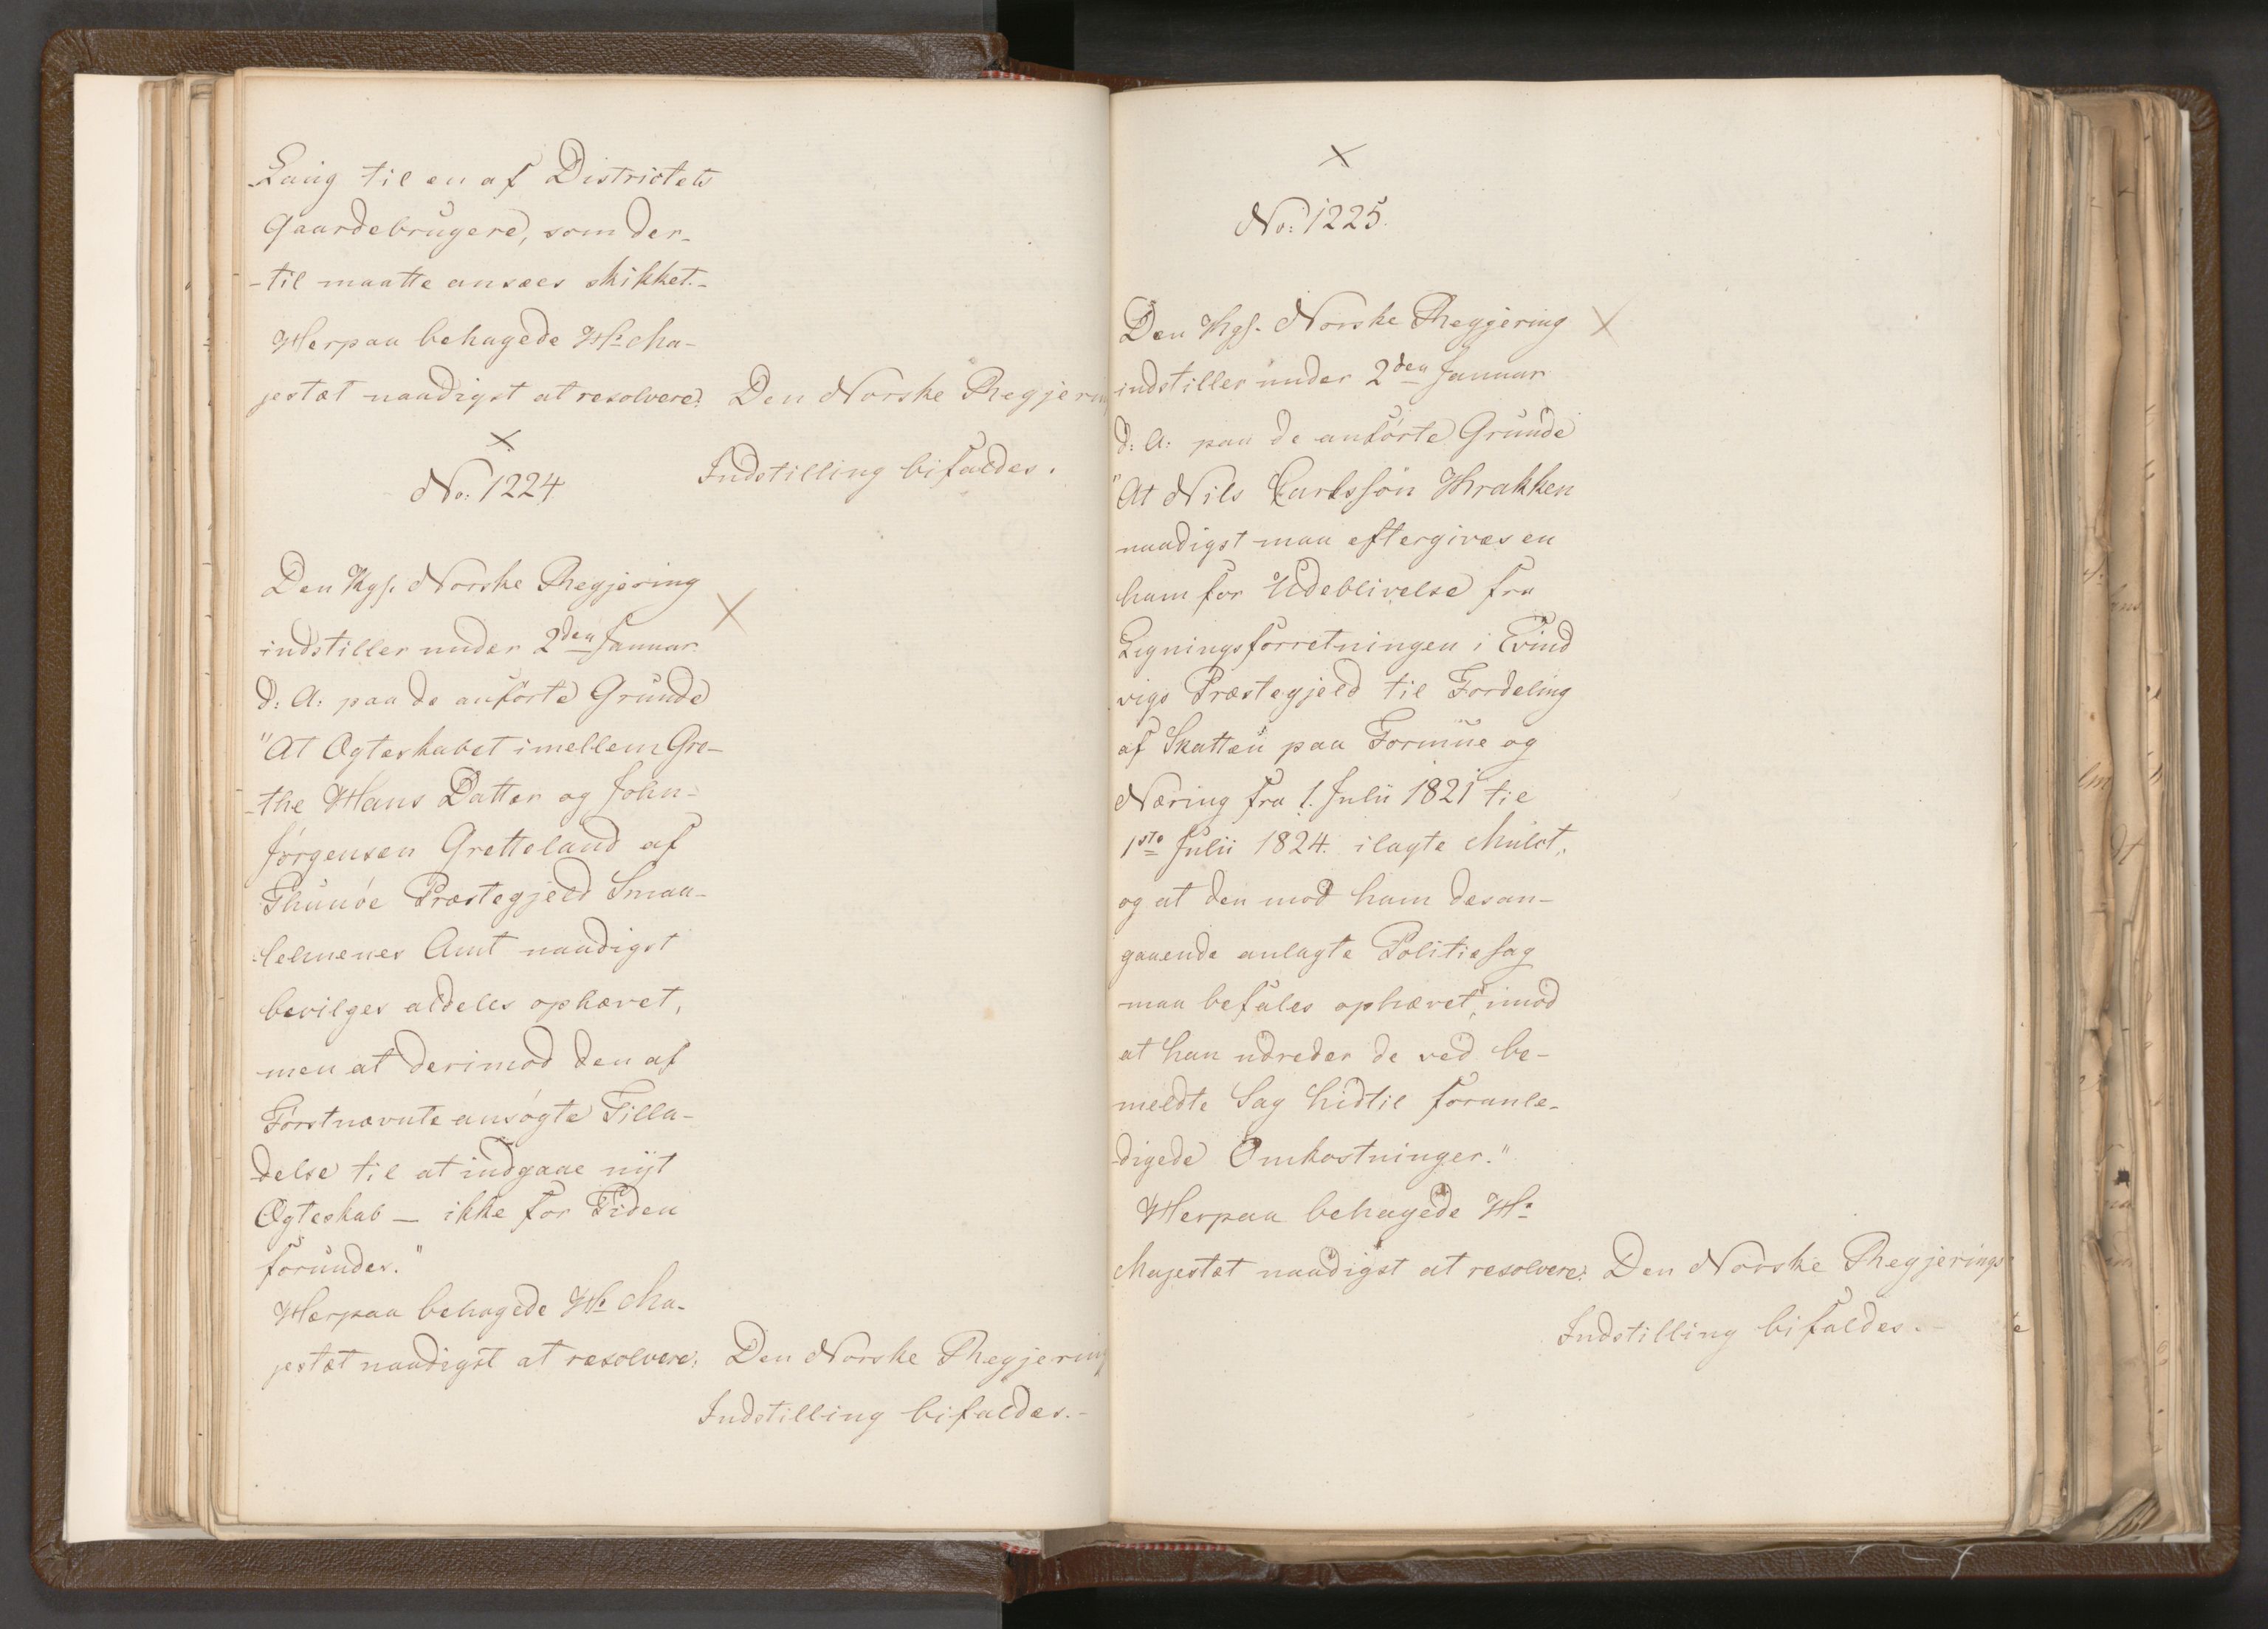 Laug til en af Districtets
Gaardebrugere, som der-
-til maatte ansees skikket.-
Herpaa behagede Hs Ma-
jestæt naadigst at resolvere: Den Norske Regjering
Indstilling bifaldes.
No: 1224
Den Kgs. Norske Regjering
indstiller under 2den Januar
d: A: paa de anførte Grunde
"At Ægteskabet imellem Gre-
-the Hans Datter og John
Jørgensen Gretteland af
Thunøe Præstegjeld Smaa-
lehnenes Amt naadigst
bevilges aldeles ophævet,
men at derimod den af
Førstnævnte ansøgte Tilla-
delse til at indgaae nÿt
Ægteskab — ikke for Tiden
forundes."
Herpaa behagede Hs Ma-
jestæt naadigst at resolvere: Den Norske Regjering
Indstilling bifaldes.-
No: 1225.
Den Kgs. Norske Regjering
indstiller under 2den Januar
d: A: paa de anførte Grunde
"At Nils Larssøn Krakken
naadigst maa eftergives en
ham for Udeblivelse fra
Ligningsforretningen i Evind
vigs Præstegjeld til Fordeling
af Skatten paa Formue og
Næring fra 1. Julii 1821 til
1ste Julii 1824. ilagte Mulct,
og at den mod ham desan-
gaaende anlagte Politiesag
maa befales ophævet, imod
at han udreder de ved be-
meldte Sag hidtil foranle-
digede Omkostninger."
Herpaa behagede Hs
Majestæt naadigst at resolvere: Den Norske Regjerings
Indstilling bifaldes.-